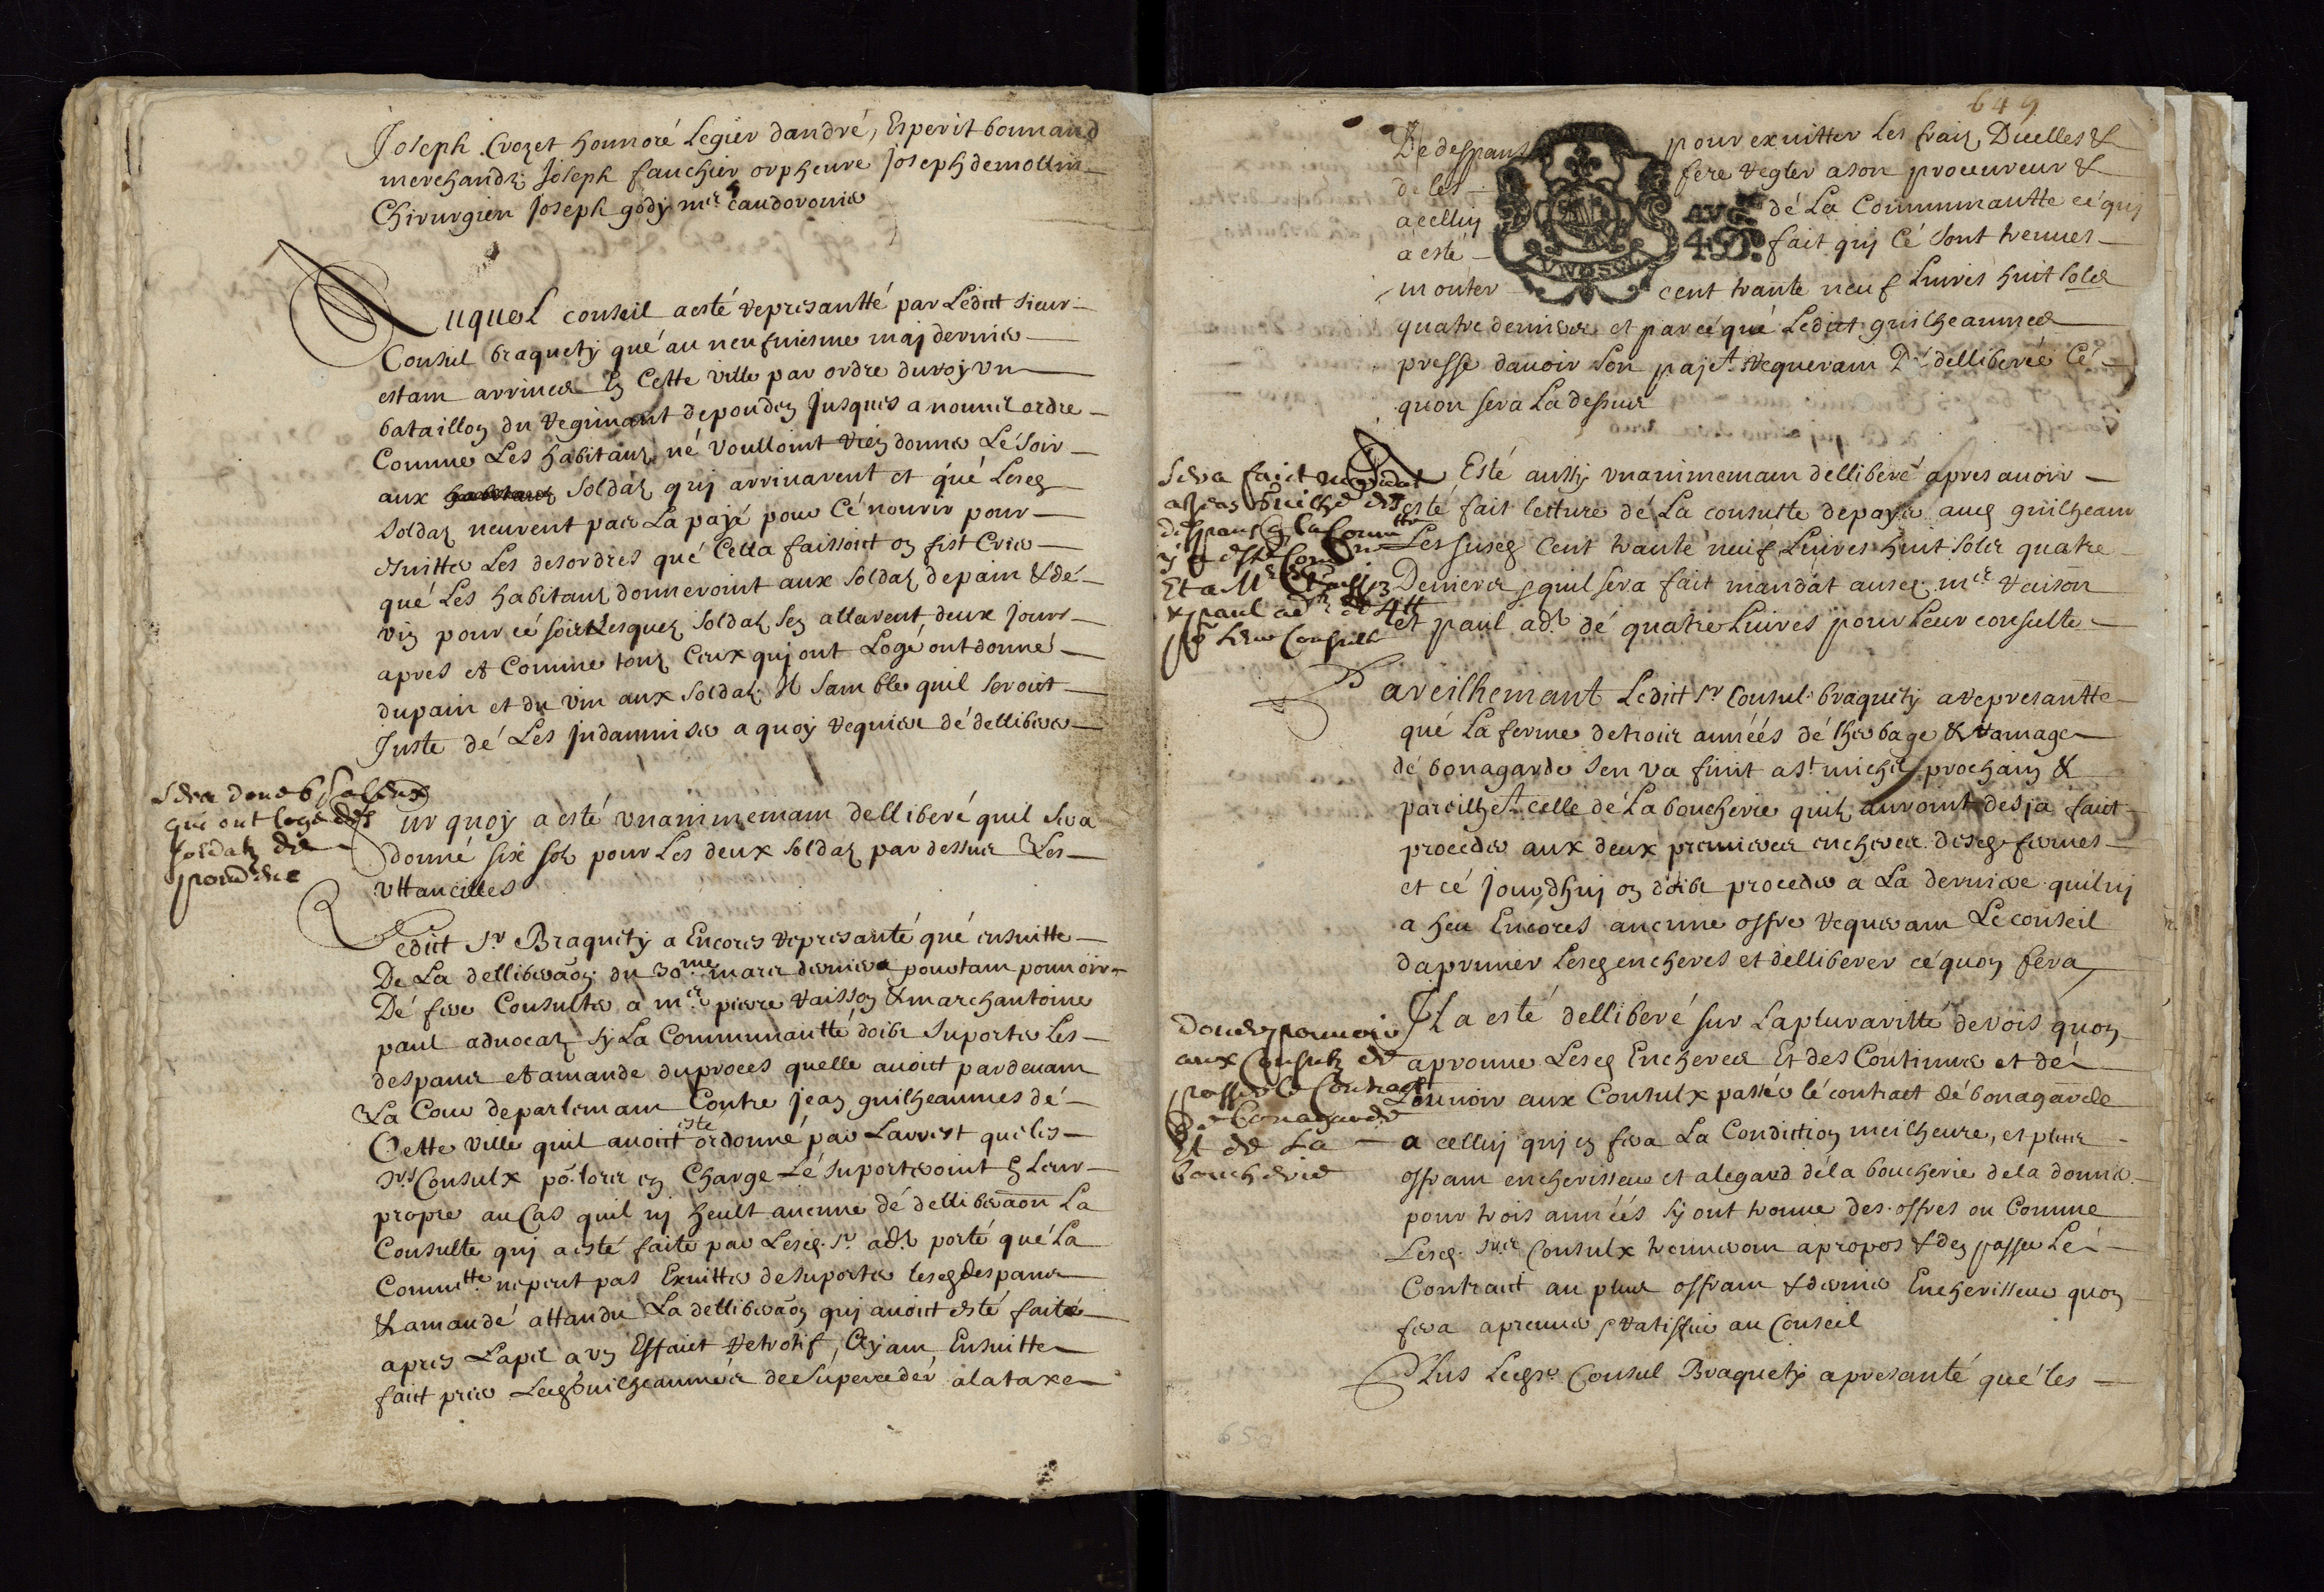 Joseph Crozet honnoré Legier dandré, Esperit bonnaud
merchandz Joseph fauchier orpheure Joseph demollin
Chirurgien Joseph gody mre
Auquel conseil a esté represantté par Ledict sieur
Consul braquety qué au neufuiesme maj dernier
estam arriuez En Cette ville par ordre du roy vn
bataillon du regimant de poudez jusques a nouuel ordre
Comme Les habitanz né voulloint rien donner Lé soir
aux soldaz quj arriuarent et qué Lesez
soldaz neurent pas La pajé pour Cé nourir pour
esuitter Les desordres qué Cella faissoict on fist Crier
qué Les habitanz donneroint aux soldaz depain & dé
vin pour cé soir Lesquez soldaz sen allarent deux jours
apres et Comme touz Ceux quj ont Logé ont donné
dupain et du vin aux soldaz Il samble quil seroict
Juste dé Les jndamniser a quoy requier dé delliberer
Sera doné 6 s a ceux
qui ont logé des
soldatz de
Sur quoy a esté vnanimemam delliberé quil sera
donné six solz pour Les deux soldaz par dessus Les
vttancilles
Ledict Sr Braquety a Encores represanté qué ensuitte
De La delliberaon du 30me mars dernier pourtam pouuoir
Dé fere Consulter a mes pierre Vaisson & marchantoine
paul aduocaz sy La Communautté doibt suporter Les
despanz et amande duproces quelle auoict pardeuam
La Cour de parlemam Contre jean guilheaumes dé
Cette ville quil auoict esté ordonné par Larrest que les
srs Consulx po. lors en Charge Lé suporteroint En Leur
propre au Cas quil nj heult aucune dé delliberaon La
Consulte quj a esté faite par Lesez. sr. adt porté qué La
Commtté ne peut pas Exuitter de suporter lesez despanz
& amandé attandu La delliberaon quj auoict esté faite
apres Lapel a vn Effaict retrotif, Ayam Ensuitte
faict prier Ledz Guilheaumes de superceder a la taxe
649
De despanz pour exuitter Les fraiz Dicelles &
de les fere regler a son procureur &
a celluy dé La Communautté cé quj
a esté fait quj Cé sont treuues
monter cent trante neuf Liures huit solz
quatre deniers et parcé qué Ledict guilheaumes
pressé dauoir son pajet. requeram Dé delliberer Cé
quon fera La dessus
A Esté aussy vnanimemam delliberé apres auoir
esté fait letture dé La consulte depayer aud guilheaum
Les susez Cent trante neuf Liures huit solz quatre
Deniers, quil sera fait mandat ausez. mes Vaison
et paul adt dé quatre Liures pour Leur consulte
Sera fait mandat
Pareilhemant Ledict sr Consul braquety a represantté
qué La ferme detrois annéés dé lherbage & ramage
dé bonagarde sen va finit a St michel prochain &
pareilhet celle dé La boucherie quilz auroint desja fait
proceder aux deux premieres encheres desez fermes
et cé jourdhuj on doibt proceder a La derniere quil nj
a heu Encores aucune offre requeram Le conseil
daprouuer Lesez encheres et delliberer cé quon fera
Il a esté delliberé sur La pluraritté de vois quon
aprouue Lesez Encheres Et des Continuer et dé
pouuoir aux Consulx passer lé contract dé bonagarde
a celluj quj en fera La Condiction meilheure, et plus
offram encherisseur et alegard déla boucherie dela donner
pour trois annéés sy ont trouue des offres ou Comme
Lesez. srs Consulx treuueron apropos & den passer Lé
Contract au plus offram & dernier Encherisseur quon
fera aprouuer, ratiffier au Conseil
Doner pouuoir
aux Consulz de
passer le Contract
De Bonagarde
Et de La
boucherie
Plus Ledz sr Consul Braquety a presanté qué les
650